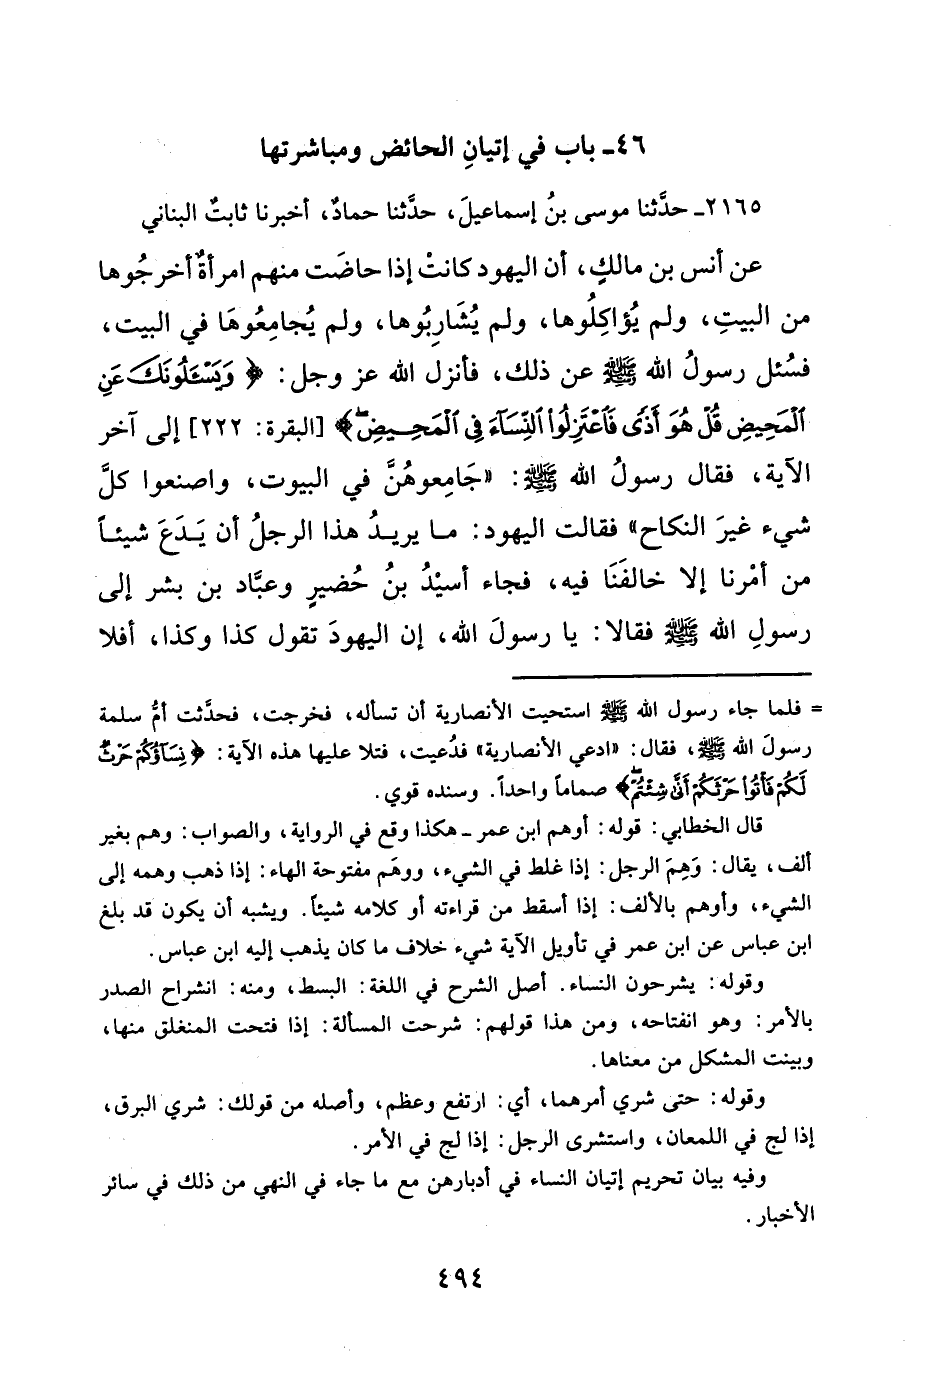 ٤٦ـ باب في إتيانِ الحائض ومباشرتها
٢١٦٥ـ حدَّثنا موسى بنُ إسماعيلَ، حدَّثنا حمادٌ، أخبرنا ثابتٌ البناني
عن أنس بن مالكٍ، أن اليهود كانتْ إذا حاضَت منهم امرأةٌ أخرجُوها
من البيتِ، ولم يُؤاكِلُوها، ولم يُشَارِبُوها، ولم يُجامِعُوهَا في البيت،
فسُئل رسولُ الله ﷺ عن ذلك، فأنزل الله عز وجل: ﴿ وَيَسْـَٔلُونَكَ عَنِ
ٱلْمَحِيضِ قُلْ هُوَ أَذًى فَٱعْتَزِلُوا۟ ٱلنِّسَآءَ فِى ٱلْمَحِيضِۖ﴾ [البقرة: ٢٢٢] إلى آخر
الآية، فقال رسولُ الله ﷺ: «جَامِعوهُنَّ في البيوت، واصنعوا كلَّ
شيء غيرَ النكاح» فقالت اليهود: ما يريدُ هذا الرجلُ أن يَدَعَ شيئاً
من أمْرنا إلا خالفَنَا فيه، فجاء أسيْدُ بنُ حُضيرٍ وعبَّاد بن بشر إلى
رسولِ الله ﷺ فقالا: يا رسولَ الله، إن اليهودَ تقول كذا وكذا، أفلا
= فلما جاء رسول الله ﷺ استحيت الأنصارية أن تسأله، فخرجت، فحدَّثت أمُّ سلمة
رسولَ الله ﷺ، فقال: «ادعي الأنصارية» فدُعيت، فتلا عليها هذه الآية: ﴿ نِسَآؤُكُمْ حَرْثٌ
لَّكُمْ فَأْتُوا۟ حَرْثَكُمْ أَنَّىٰ شِئْتُمْۖ﴾ صماماً واحداً. وسنده قوي.
قال الخطابي: قوله: أوهم ابن عمر ـ هكذا وقع في الرواية، والصواب: وهم بغير
ألف، يقال: وَهِمَ الرجل: إذا غلط في الشيء، ووهَم مفتوحة الهاء: إذا ذهب وهمه إلى
الشيء، وأوهم بالألف: إذا أسقط من قراءته أو كلامه شيئاً. ويشبه أن يكون قد بلغ
ابن عباس عن ابن عمر في تأويل الآية شيء خلاف ما كان يذهب إليه ابن عباس.
وقوله: يشرحون النساء. أصل الشرح في اللغة: البسط، ومنه: انشراح الصدر
بالأمر: وهو انفتاحه، ومن هذا قولهم: شرحت المسألة: إذا فتحت المنغلق منها،
وبينت المشكل من معناها.
وقوله: حتى شري أمرهما، أي: ارتفع وعظم، وأصله من قولك: شري البرق،
إذا لج في اللمعان، واستشرى الرجل: إذا لج في الأمر.
وفيه بيان تحريم إتيان النساء في أدبارهن مع ما جاء في النهي من ذلك في سائر
الأخبار.
٤٩٤